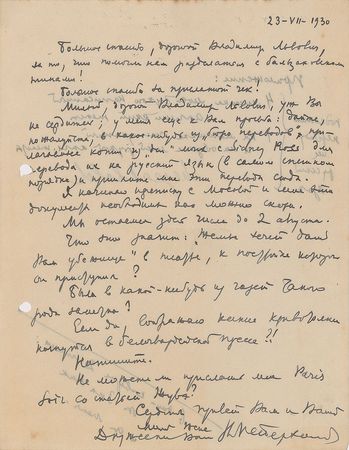 23-VII-1930
Большое спасибо, дорогой Владимир Львович,
за то, что помогли нам разделаться с
Большое спасибо за присланный чек.
Милый, дорогой Владимир Львович, уж Вы
не сердитесь, у меня еще к Вам просьба: дайте,
пожалуйста, в какое-нибудь из "бюро переводов"
копии для
перевода их на русский язык (в самом спешном
порядке) и пришлите мне эти переводы сюда.
Я начинаю переписку с Москвой и мне эти
документы необходимы как можно скорее.
Мы остаемся здесь числа до 2 августа.
Что это значит: "Жемье хочет дать
Вам убежище" в театре, к постройке которого
он приступил?
Была в какой-нибудь из газет такого
рода заметка?
Если да, воображаю какие кривотолки
начнутся в белогвардейской прессе?!
Напишите.
Не можете ли прислать мне Paris
Soir со статьей
Сердечный привет Вам и Вашей
милой жене
Дружески Ваш В. Мейерхольд